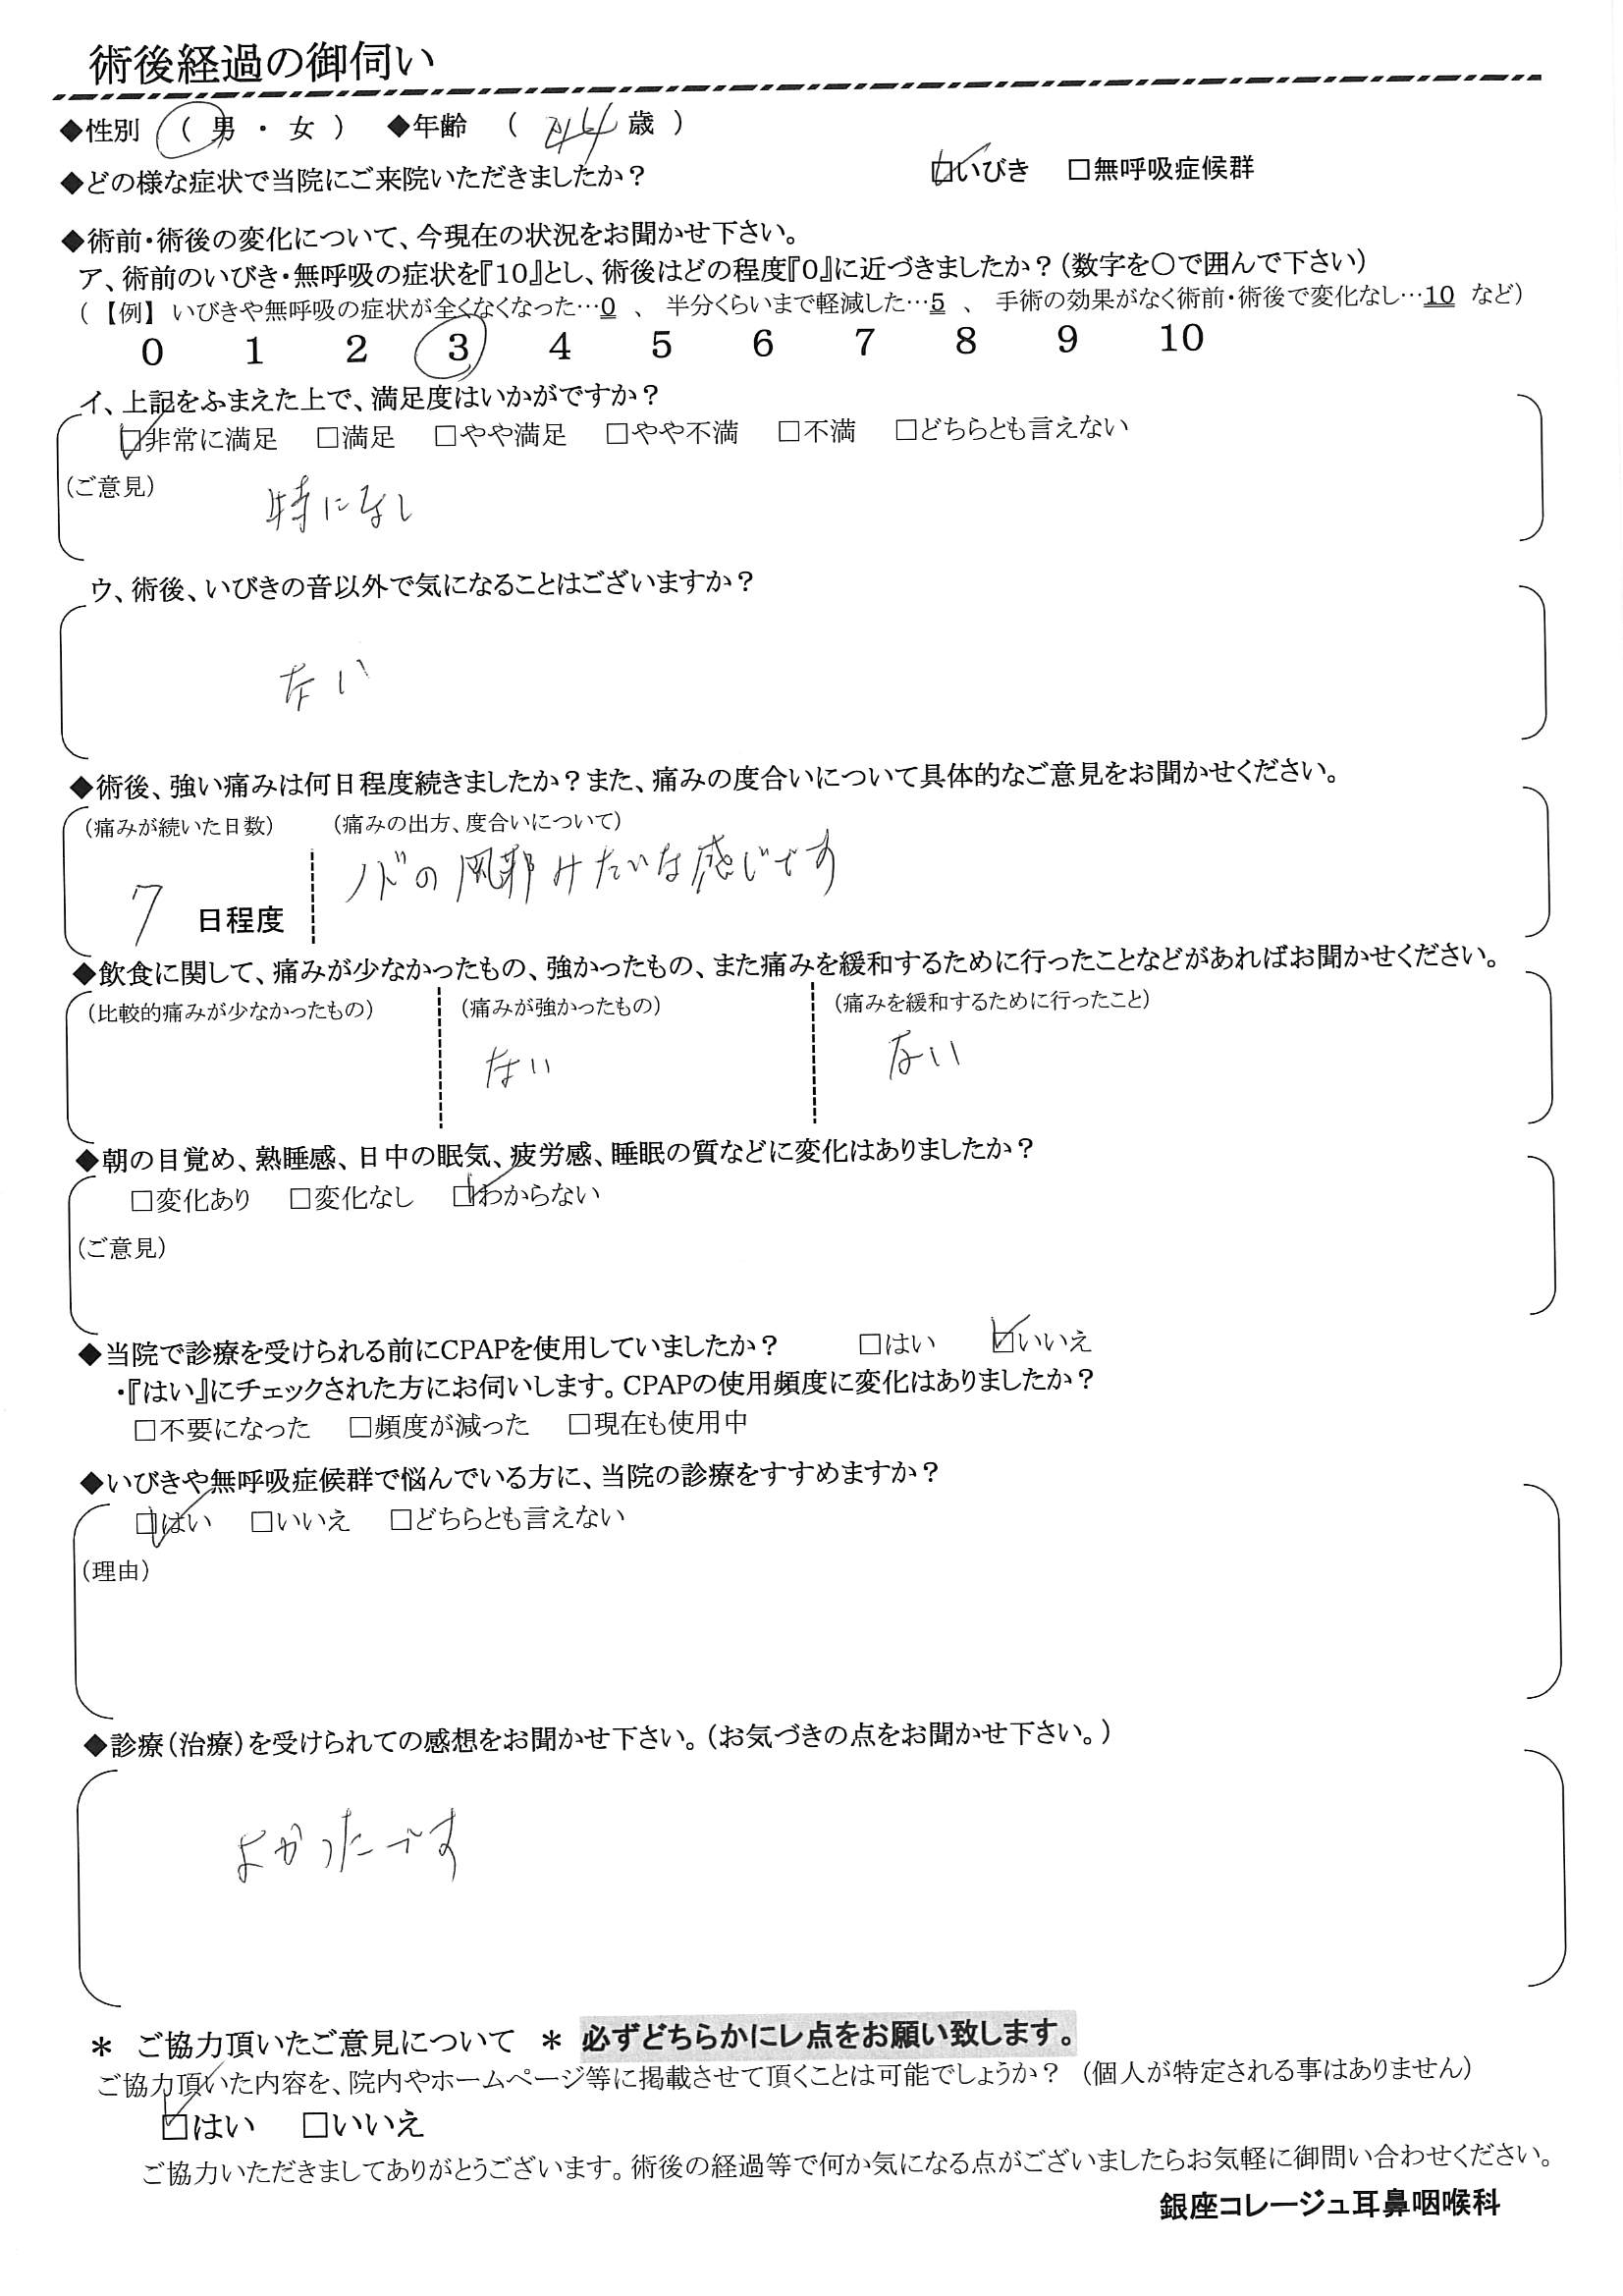 術後経過の御伺い
◆性別 ( 男 ・ 女 ) ◆年齢 ( 44 歳 )
◆どの様な症状で当院にご来院いただきましたか? ☑いびき □無呼吸症候群
◆術前・術後の変化について、今現在の状況をお聞かせ下さい。
ア、術前のいびき・無呼吸の症状を『10』とし、術後はどの程度『0』に近づきましたか?(数字を○で囲んで下さい)
( 【例】 いびきや無呼吸の症状が全くなくなった…0 、 半分くらいまで軽減した…5 、 手術の効果がなく術前・術後で変化なし…10 など)
0 1 2 3 4 5 6 7 8 9 10
イ、上記をふまえた上で、満足度はいかがですか?
☑非常に満足 □満足 □やや満足 □やや不満 □不満 □どちらとも言えない
(ご意見)
特になし
ウ、術後、いびきの音以外で気になることはございますか?
ない
◆術後、強い痛みは何日程度続きましたか?また、痛みの度合いについて具体的なご意見をお聞かせください。
(痛みが続いた日数) (痛みの出方、度合いについて)
7 日程度 ノドの風邪みたいな感じです
◆飲食に関して、痛みが少なかったもの、強かったもの、また痛みを緩和するために行ったことなどがあればお聞かせください。
(比較的痛みが少なかったもの) (痛みが強かったもの) (痛みを緩和するために行ったこと)
ない ない
◆朝の目覚め、熟睡感、日中の眠気、疲労感、睡眠の質などに変化はありましたか?
□変化あり □変化なし ☑わからない
(ご意見)
◆当院で診療を受けられる前にCPAPを使用していましたか? □はい ☑いいえ
・『はい』にチェックされた方にお伺いします。CPAPの使用頻度に変化はありましたか?
□不要になった □頻度が減った □現在も使用中
◆いびきや無呼吸症候群で悩んでいる方に、当院の診療をすすめますか?
☑はい □いいえ □どちらとも言えない
(理由)
◆診療(治療)を受けられての感想をお聞かせ下さい。(お気づきの点をお聞かせ下さい。)
よかったです
＊ ご協力頂いたご意見について ＊ 必ずどちらかにレ点をお願い致します。
ご協力頂いた内容を、院内やホームページ等に掲載させて頂くことは可能でしょうか? (個人が特定される事はありません)
☑はい □いいえ
ご協力いただきましてありがとうございます。術後の経過等で何か気になる点がございましたらお気軽に御問い合わせください。
銀座コレージュ耳鼻咽喉科